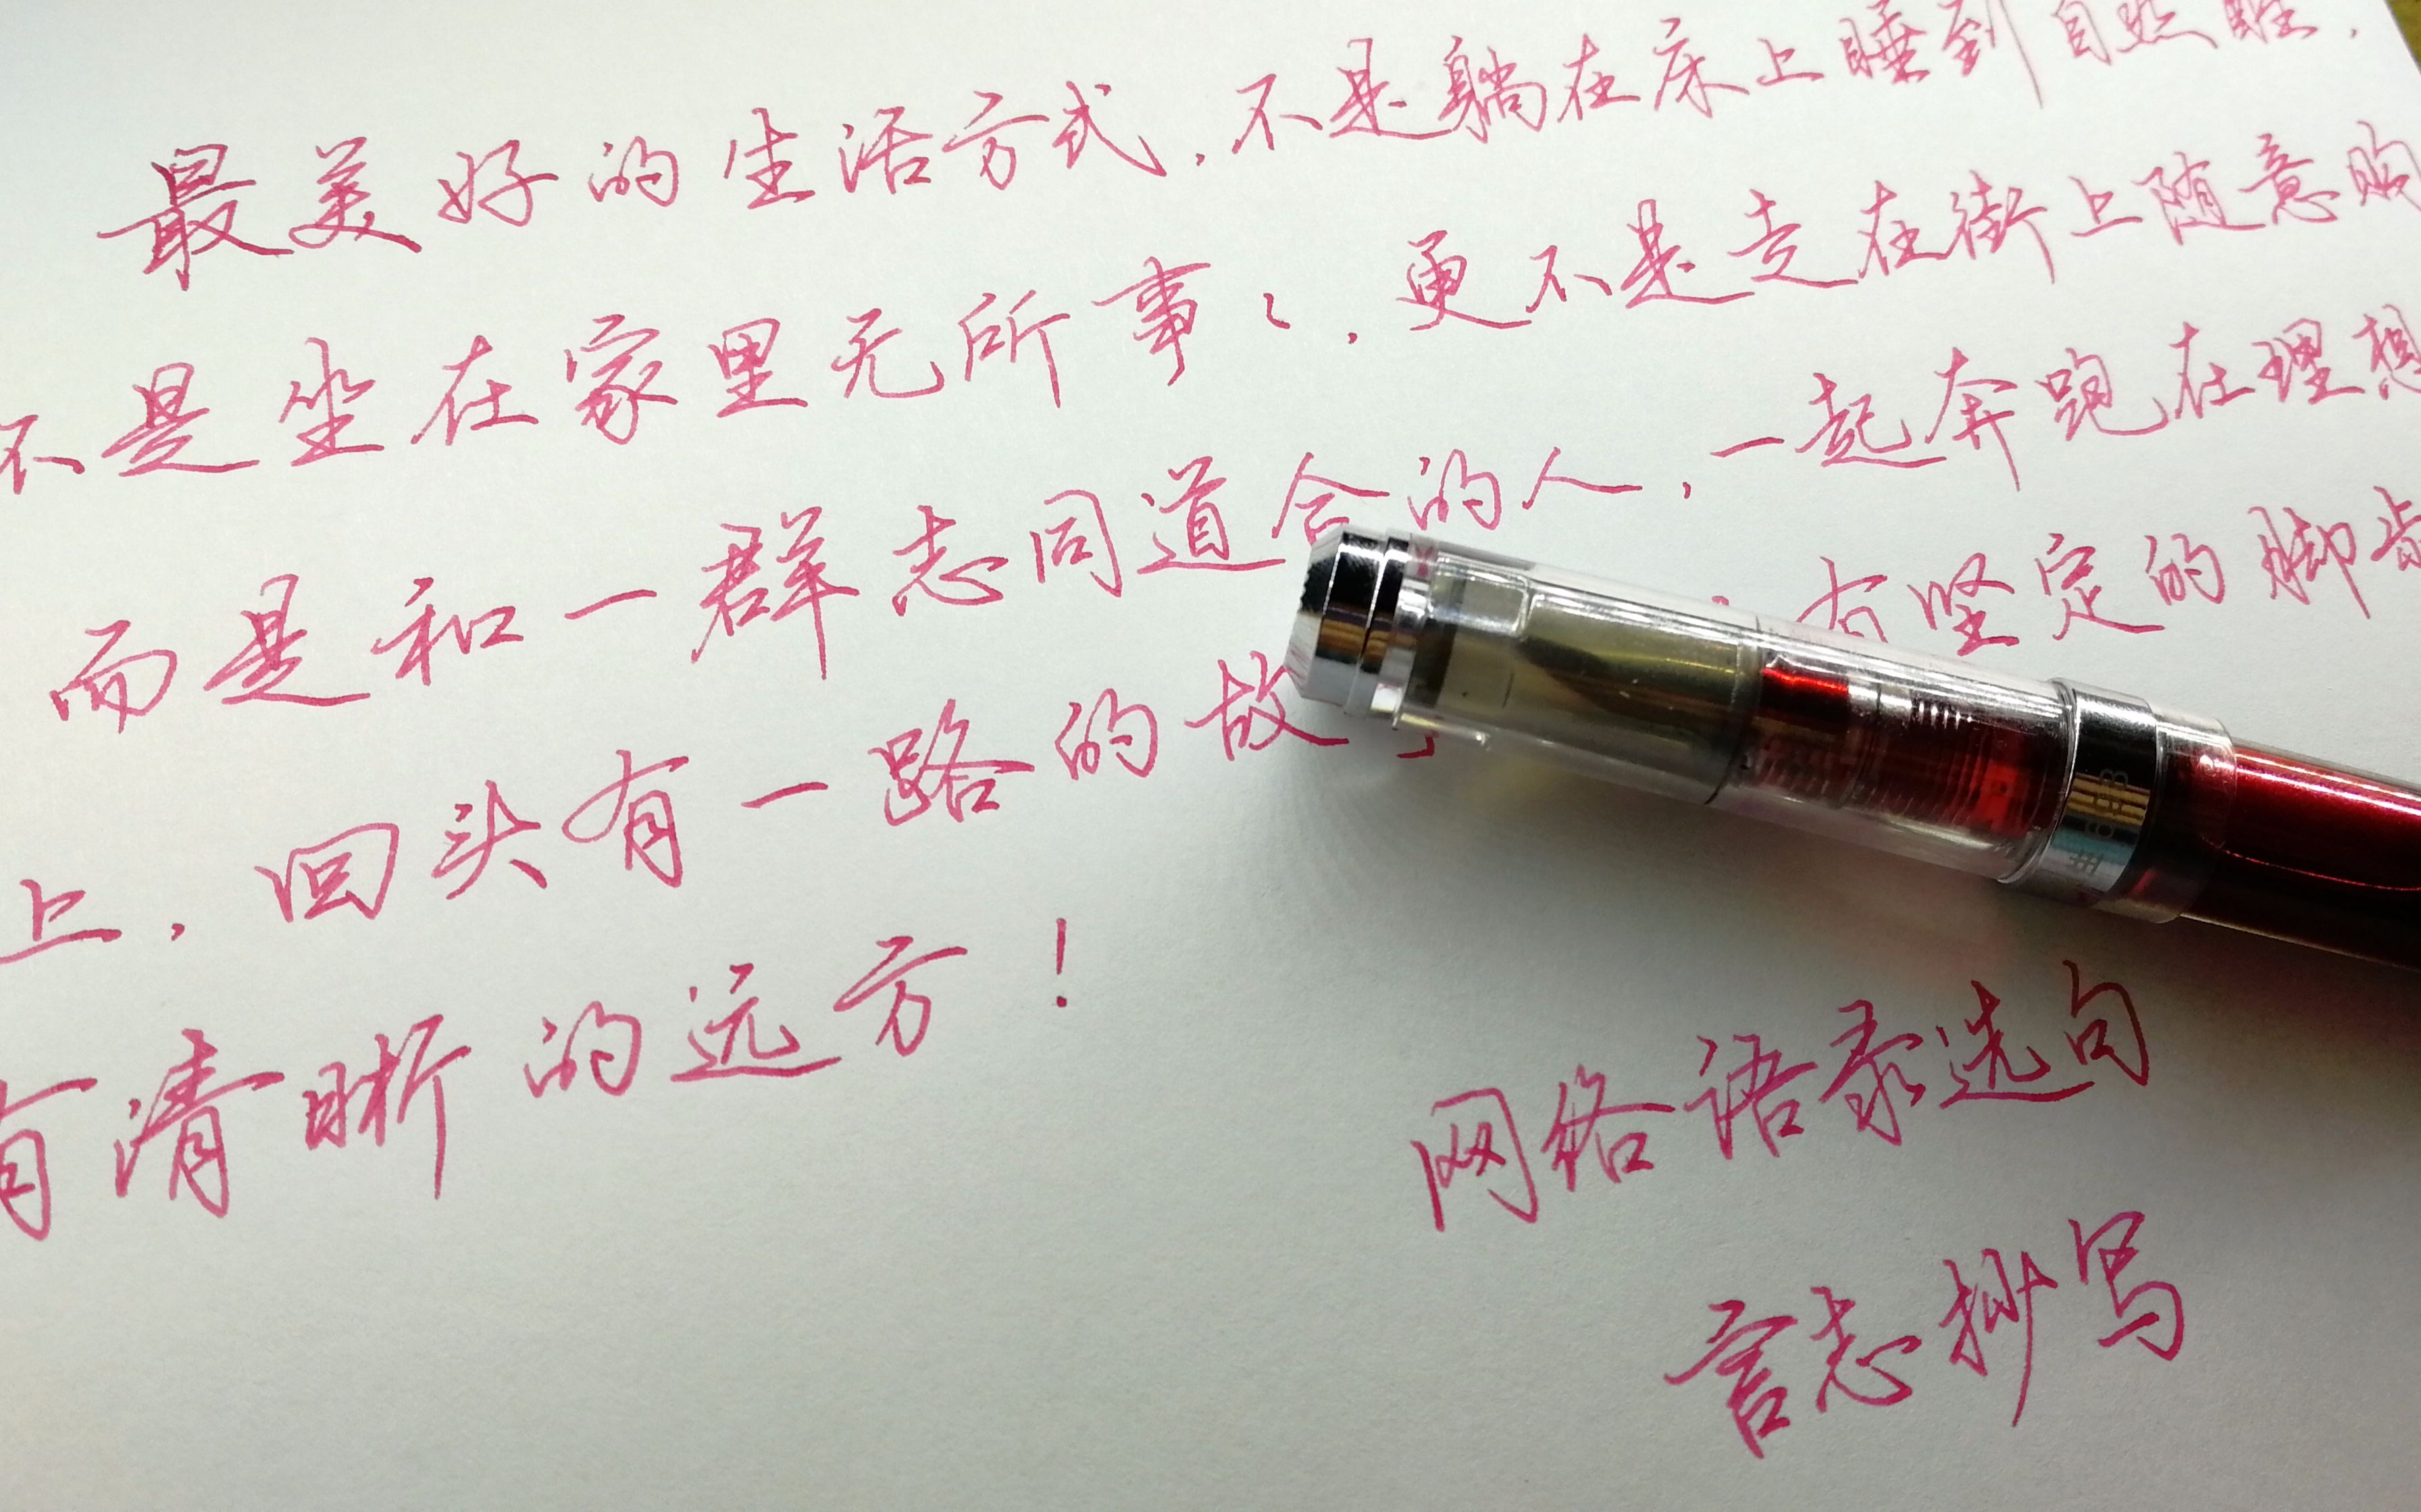 最美好的生活方式，不是躺在床上睡到自然醒，
不是坐在家里无所事々，更不是走在街上随意购
而是和一群志同道合的人，一起奔跑在理想
上，回头有一路的故事 有坚定的脚步
有清晰的远方！
网络语录选句
言志抄写